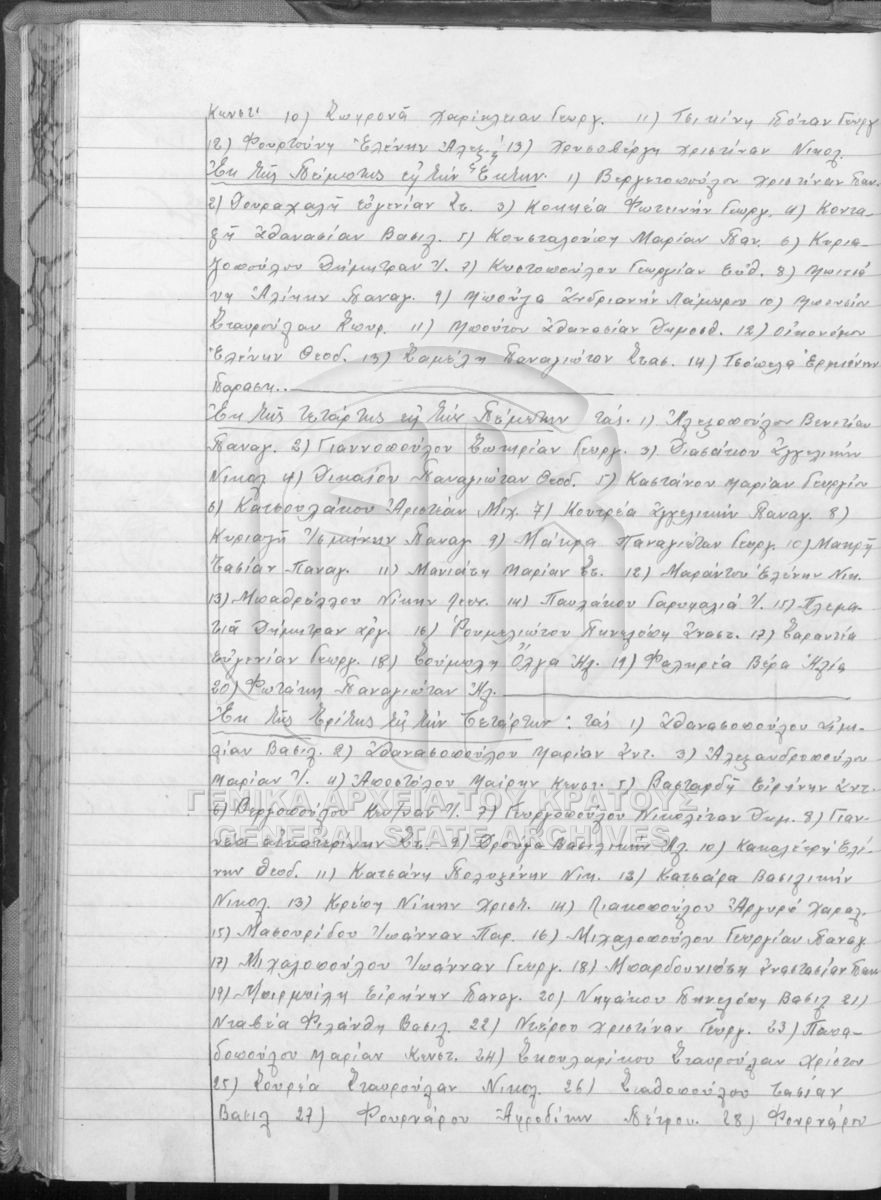 Κωνστ. 10) Σωφρονᾶ Χαρίκλειαν Γεωργ. 11) Τσικίνη Πόταν Γεωργ
12) Φουρτούνη Ἑλένην Ἀλεξ. 13) Χρυσοβέργη Χριστίναν Νικολ.
Ἐκ τῆς Πέμπτης εἰς τὴν Ἕκτην. 1) Βεργετοπούλου Χριστίναν Παν.
2) Δουραχαλῆ Εὐγενίαν Στ. 3) Κοκκέα Φωτεινὴν Γεωργ. 4) Κοντα-
ξῆ Ἀθανασίαν Βασιλ. 5) Κουσταλούπη Μαρίαν Παν. 6) Κυρια-
ζοπούλου Δήμητραν Ἰ. 7) Κωστοπούλου Γεωργίαν Εὐθ. 8)
Ἀλίκην Παναγ. 9) Μπούγα Ἀνδριανὴν Λάμπρου 10)
Σταυρούλαν Σπυρ. 11) Μπούτου Ἀθανασίαν Δημοσθ. 12) Οἰκονόμου
Ἑλένην Θεοδ. 13) Σαμέλη Παναγιώταν Στασ. 14) Τσώπελα Ἑρμιόνην
Παρασκ.
Ἐκ τῆς τετάρτης εἰς τὴν Πέμπτην τάς. 1) Ἀλεξοπούλου Βενετίαν
Παναγ. 2) Γιαννοπούλου Σωτηρίαν Γεωργ. 3) Διασάκου Ἀγγελικὴν
Νικολ 4) Δικαίου Παναγιώταν Θεοδ. 5) Καστάνου Μαρίαν Γεωργίου
6) Κατσουλάκου Ἀριστέαν Μιχ. 7) Κουτρέα Ἀγγελικὴν Παναγ. 8)
Κυριαζῆ Ἰσμήνην Παναγ. 9) Μάκρα Παναγιώταν Γεωργ. 10) Μακρῆ
Τασίαν Παναγ. 11) Μανιάτη Μαρίαν Στ. 12) Μαράντου Ἑλένην Νικ.
13) Μπαθρέλλου Νίκην 14) Παυλάκου Γαρυφαλιά Ἰ. 15) Πλεμα-
τιᾶ Δήμητραν Ἀργ. 16) Ρουμελιώτου Πηνελόπη Ἀναστ. 17) Σαραντέα
Εὐγενίαν Γεωργ. 18) Σούμπλη Ὄλγα Ἀγ. 19) Φαληρέα Βέρα Ἠλία
20) Φωτάκη Παναγιώταν Ἠλ.
Ἐκ τῆς Τρίτης εἰς τὴν Τετάρτην: τάς 1) Ἀθανασοπούλου Αἰμι-
λίαν Βασιλ. 2) Ἀθανασοπούλου Μαρίαν Ἀντ. 3) Ἀλεξανδροπούλου
Μαρίαν Ἰ. 4) Ἀποστόλου Μαίρην Κωνστ. 5) Βασταρδῆ Εἰρήνην Ἀντ.
6) Βεργοπούλου Κων/ναν Ἰ. 7) Γεωργοπούλου Νικολέταν Δημ. 8) Γιαν-
νέα Αἰκατερίνην Στ. 9) Δρούγα Βασιλικὴν Ἀγ. 10) Κακαλέτρη Ἑλέ-
νην Θεοδ. 11) Κατσάνη Πολυξένην Νικ. 12) Κατσάρα Βασιλικὴν
Νικολ. 13) Κρέπη Νίκην Χριστ. 14) Λιακοπούλου Ἀργυρὼ Χαραλ.
15) Μασουρίδου Ἰωάνναν Παρ. 16) Μιχαλοπούλου Γεωργίαν Παναγ
17) Μιχαλοπούλου Ἰωάνναν Γεωργ. 18) Μπαρδουνιώτη Ἀναστασίαν Παν
19) Μπιρμπίλη Εἰρήνην Παναγ. 20) Νηφάκου Πηνελόπη Βασιλ 21)
Νταβέα Φιλάνθη Βασιλ. 22) Ντέρου Χριστίναν Γεωργ. 23) Παπα-
δοπούλου Μαρίαν Κωνστ. 24) Σκουλαρίκου Σταυρούλαν Χρίστου
25) Σουρέα Σταυρούλαν Νικολ. 26) Σταθοπούλου Τασίαν
Βασιλ 27) Φουρνάρου Ἀφροδίτην Πέτρου. 28) Φουρνάρου
ΓΕΝΙΚΑ ΑΡΧΕΙΑ ΤΟΥ ΚΡΑΤΟΥΣ
GENERAL STATE ARCHIVES